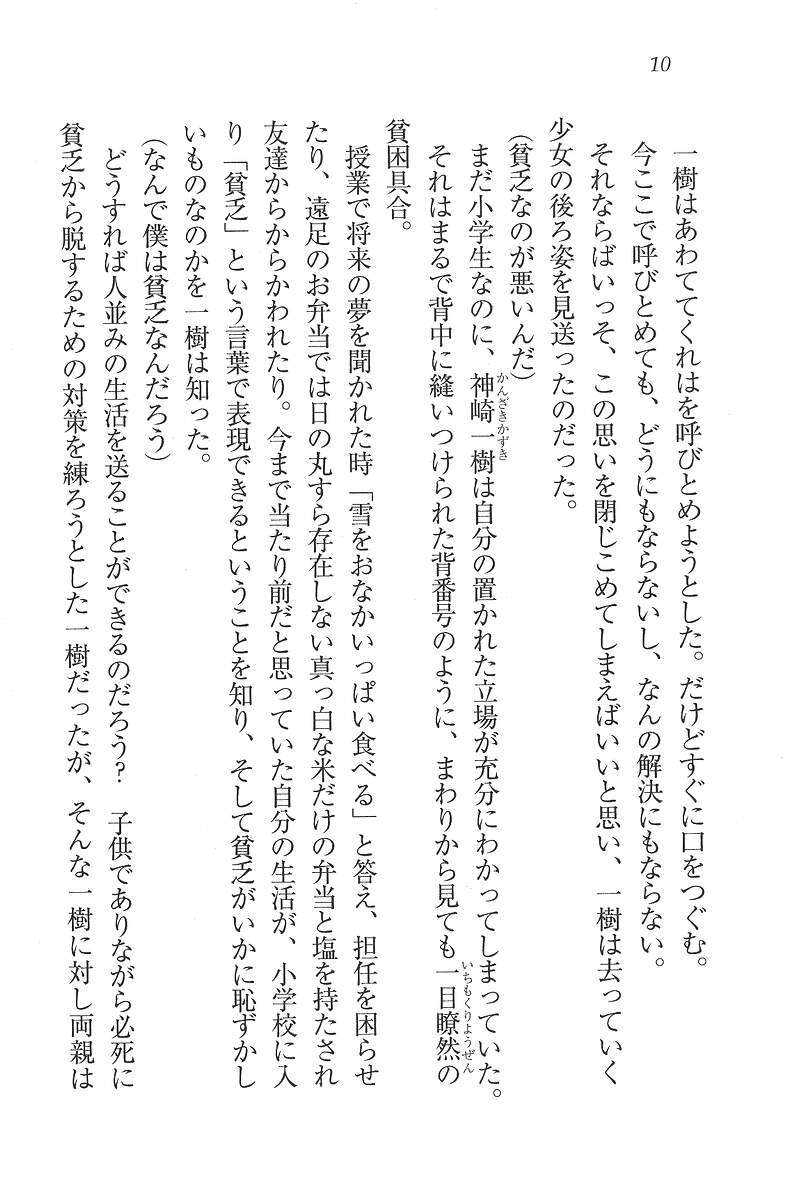 10
一樹はあわててくれはを呼びとめようとした。だけどすぐに口をつぐむ。
今ここで呼びとめても、どうにもならないし、なんの解決にもならない。
それならばいっそ、この思いを閉じこめてしまえばいいと思い、一樹は去っていく
少女の後ろ姿を見送ったのだった。
(貧乏なのが悪いんだ)
まだ小学生なのに、神崎一樹は自分の置かれた立場が充分にわかってしまっていた。
かんざきかずき
それはまるで背中に縫いつけられた背番号のように、まわりから見ても一目瞭然の
いちもくりようぜん
貧困具合。
授業で将来の夢を聞かれた時「雪をおなかいっぱい食べる」と答え、担任を困らせ
たり、遠足のお弁当では日の丸すら存在しない真っ白な米だけの弁当と塩を持たされ
友達からからかわれたり。今まで当たり前だと思っていた自分の生活が、小学校に入
り「貧乏」という言葉で表現できるということを知り、そして貧乏がいかに恥ずかし
いものなのかを一樹は知った。
(なんで僕は貧乏なんだろう)
どうすれば人並みの生活を送ることができるのだろう?　子供でありながら必死に
貧乏から脱するための対策を練ろうとした一樹だったが、そんな一樹に対し両親は